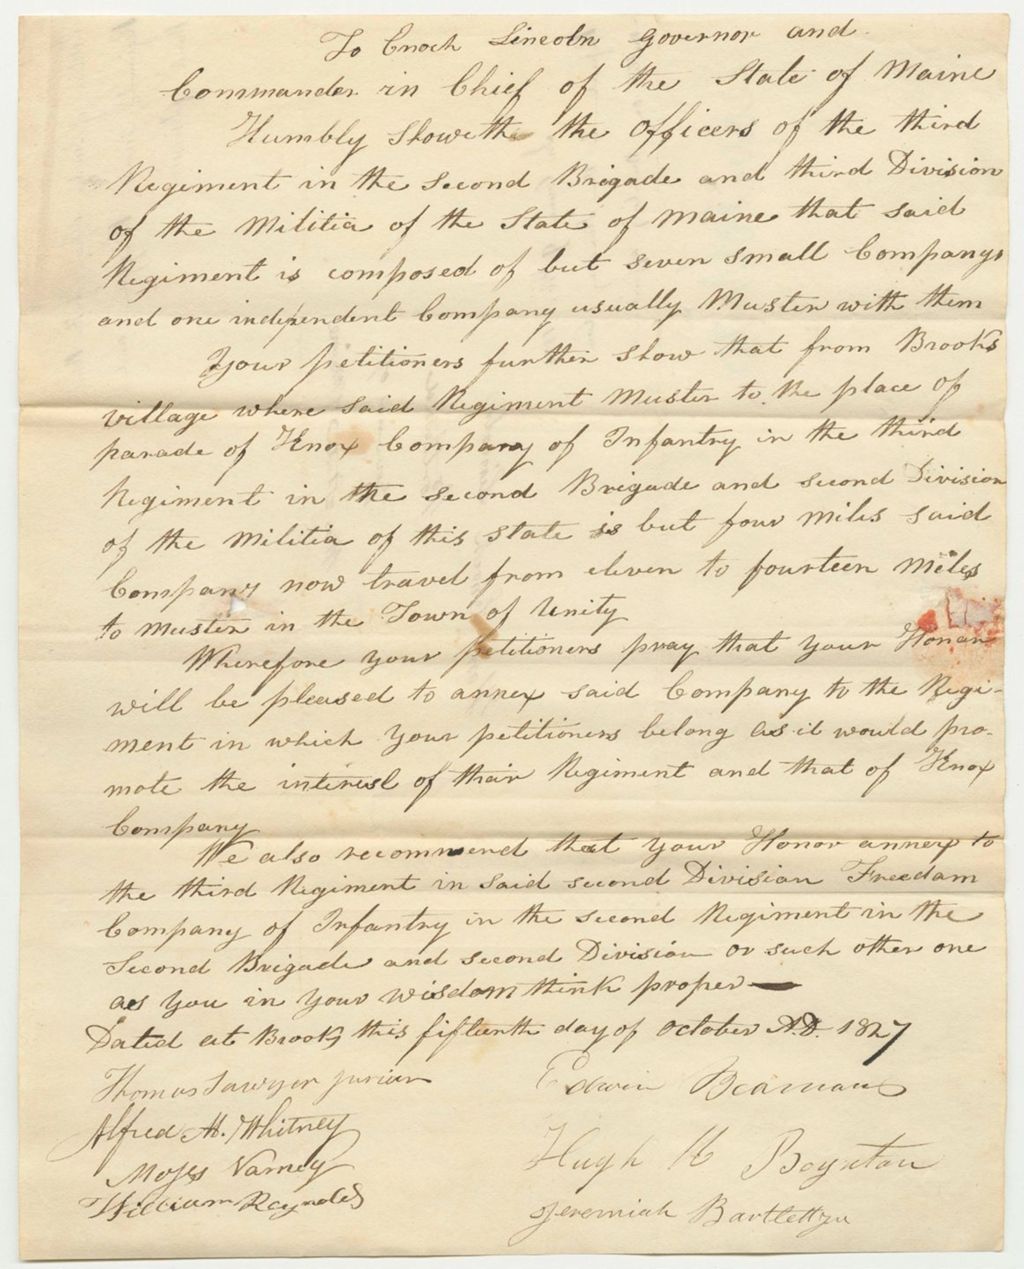 To Enoch Lincoln Governor and
Commander in Chief of the State of Maine
Humbly Sheweth the Officers of the third
Regiment in the Second Brigade and third Division
of the Militia of the State of Maine that said
Regiment is composed of but seven small Companys
and one independent Company usually Muster with them
Your petitioners further show that from Brooks
village where said Regiment Muster to the place of
parade of Knox Company of Infantry in the third
Regiment in the second Brigade and second Division
of the Militia of this State is but four miles said
Company now travel from eleven to fourteen miles
to muster in the Town of Unity
Wherefore your petitioners pray that your Honour
will be pleased to annex said Company to the Regi-
ment in which your petitioners belong as it would pro-
mote the interest of thair Regiment and that of Knox
Company
We also recommend that your Honor annex to
the third Regiment in said second Division Freedom
Company of Infantry in the second Regiment in the
Second Brigade and second Division or such other one
as you in your wisdom think proper
Dated at Brooks this fifteenth day of October A.D. 1827
Thomas Sawyer junior
Edwin Beaman
Alfred M. Whitney
Hugh K Boynton
Moses Varney
William Reynolds
Jeremiah Bartlett